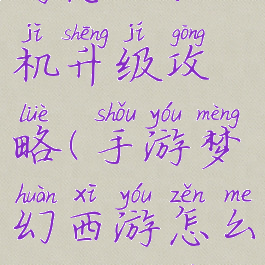 jī shēng jí gōng
机升级攻
lüè shǒu yóu mèng
略(手游梦
huàn xī yóu zěn me
幻西游怎么